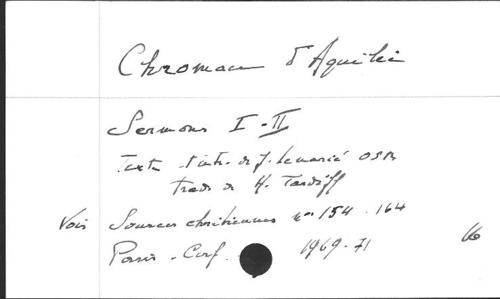 Chromace d'Aquilée
Sermons I-II
Texte et intr. de J. Lemarié OSB
trad. de H. Tardiff
Voir Sources chrétiennes nos 154. 164
Paris - Cerf. 1969-71